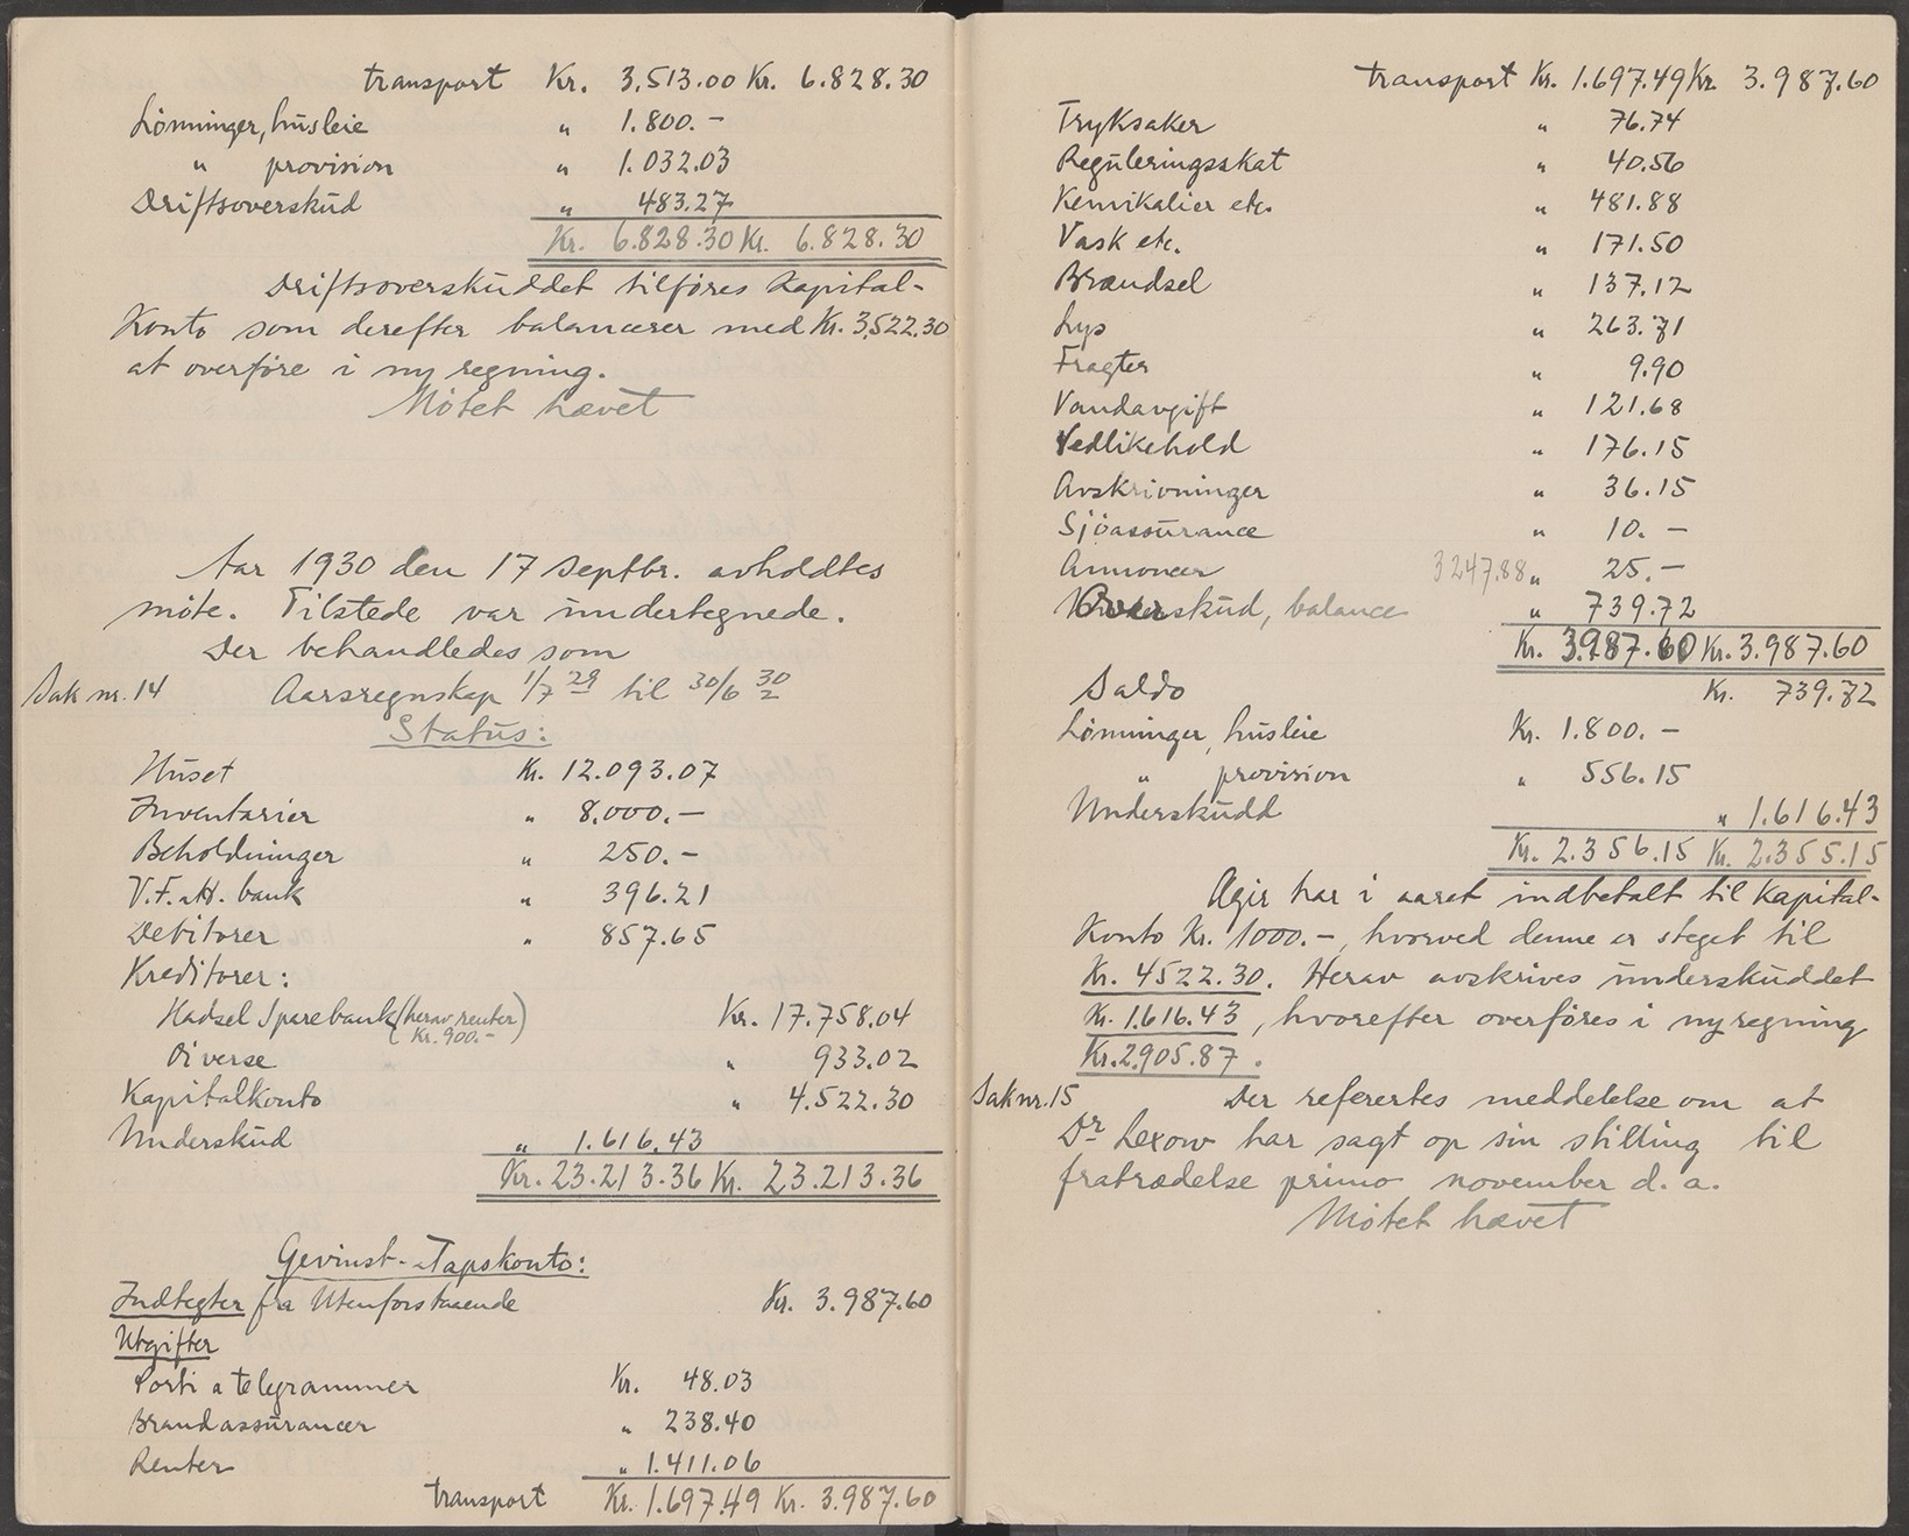 transport Kr. 3.513.00 Kr. 6.828.30
Lönninger, husleie " 1.800.-
" provision " 1.032.03
Driftsoverskud " 483.27
Kr. 6.828.30 Kr. 6.828.30
Driftsoverskuddet tilföres Kapital-
Konto som derefter balancerer med Kr. 3,522.30
at overföre i ny regning.
Mötet hævet
Aar 1930 den 17 septbr. avholdtes
möte. Tilstede var undertegnede.
Der behandledes som
Sak nr. 14 Aarsregnskap 1/7 29 til 30/6 30
Status:
Huset Kr. 12.093.07
Inventarier " 8.000.-
Beholdninger " 250.-
V.F. a H. bank " 396.21
Debitorer " 857.65
Kreditorer:
Hadsel Sparebank (herav renter Kr. 900.-) Kr. 17.758.04
Diverse " 933.02
Kapitalkonto " 4.522.30
Underskud " 1.616.43
Kr. 23.213.36 Kr. 23.213.36
Gevinst- a Tapskonto:
Indtegter fra Utenforstaaende Kr. 3.987.60
Utgifter
Porti a telegrammer Kr. 48.03
Brandassurancer " 238.40
Renter " 1.411.06
transport Kr. 1.697.49 Kr. 3.987.60
transport Kr. 1.697.49 Kr. 3.987.60
Tryksaker " 76.74
Reguleringsskat " 40.56
Kemikalier etc. " 481.88
Vask etc. " 171.50
Brændsel " 137.12
Lys " 263.71
Fragter " 9.90
Vandavgift " 121.68
Vedlikehold " 176.15
Avskrivninger " 36.15
Sjöassurance " 10.-
Annoncer 3247.88 " 25.-
Overskud, balance " 739.72
Kr. 3.987.60 Kr. 3.987.60
Saldo Kr. 739.72
Lönninger, husleie Kr. 1.800.-
" provision " 556.15
Underskudd " 1.616.43
Kr. 2.356.15 Kr. 2.355.15
Ægir har i aaret indbetalt til Kapital-
Konto Kr. 1000.-, hvorved denne er steget til
Kr. 4522.30. Herav avskrives underskuddet
Kr. 1.616.43, hvorefter overföres i ny regning
Kr. 2.905.87.
Sak nr. 15 Der referertes meddelelse om at
Dr Lexow har sagt op sin stilling til
fratrædelse primo november d. a.
Mötet hævet